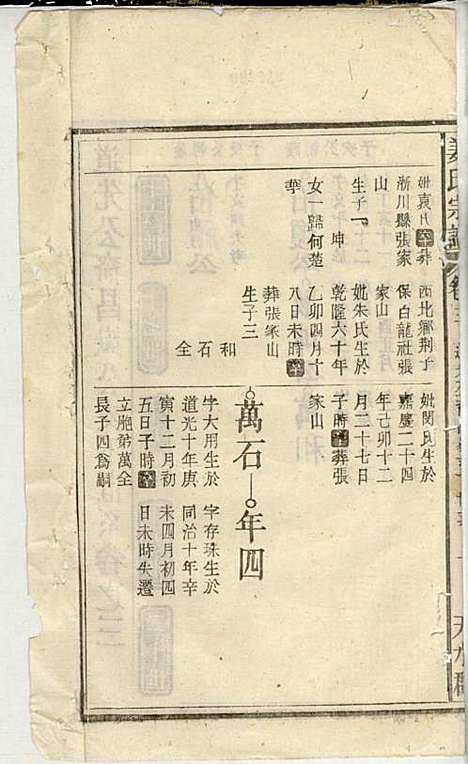 姜氏宗譜
天水郡
妣袁氏歿葬
淅川縣張家
山
生子一 坤
女一歸何楚
西北鄉荆子
保白龍社張
家山
妣朱氏生於
乾隆六十年
乙卯四月十
八日未時歿
葬張家山
生子三
和 石 全
一妣閔氏生於
嘉慶二十四
年己卯十二
月三十七日
子時歿葬張
家山
萬石
字大用生於
道光十年庚
寅十二月初
五日子時歿
立胞弟萬全
長子四為嗣
年四
字存珠生於
同治十年辛
未四月初四
日未時失遷